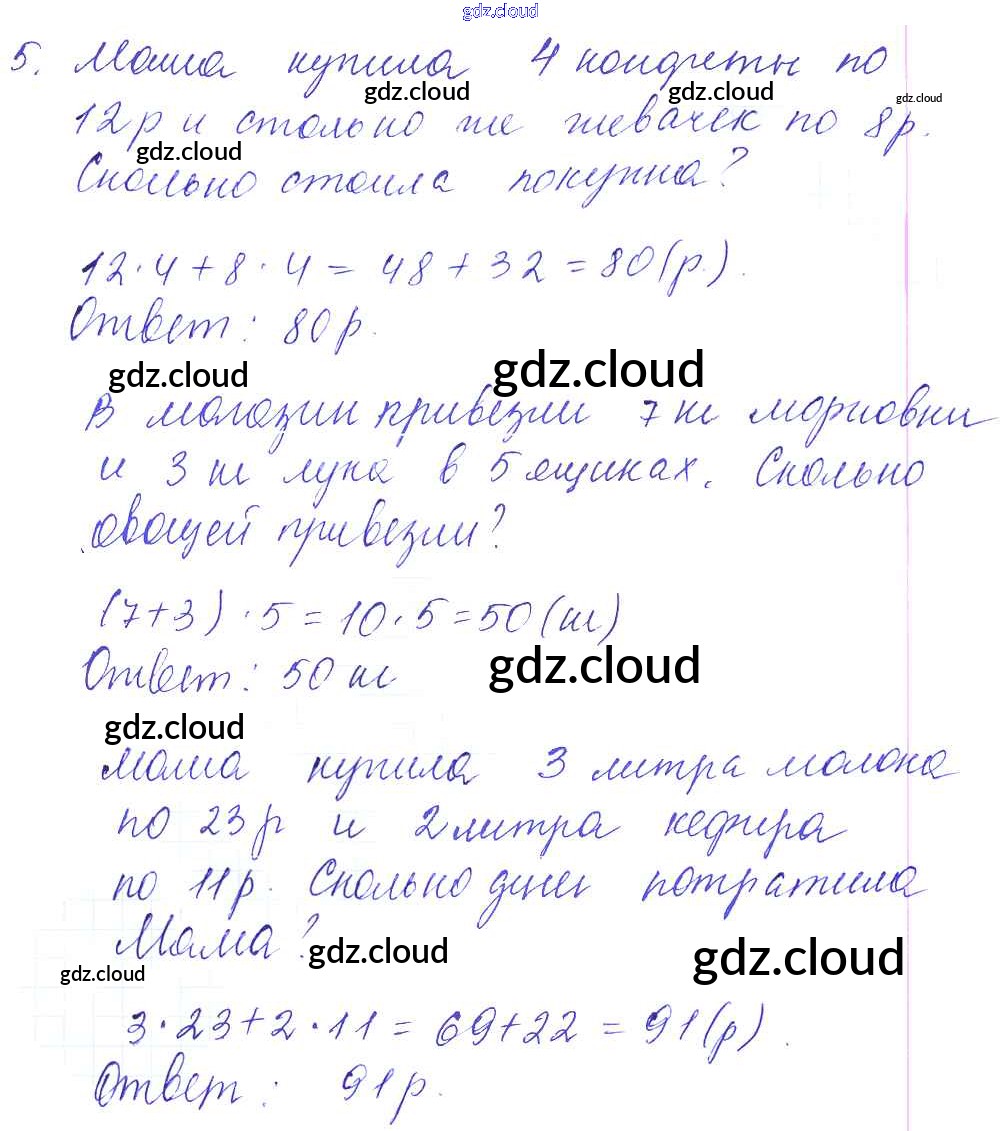 gdz.cloud
5. Маша купила 4 конфеты по
gdz.cloud gdz.cloud gdz.cloud
12р и столько же жевачек по 8р.
gdz.cloud
Сколько стоила покупка?
12·4+8·4=48+32=80(р.).
Ответ: 80р.
gdz.cloud gdz.cloud
В магазин привезли 7 кг морковки
и 3 кг лука в 5 ящиках. Сколько
овощей привезли?
(7+3)·5=10·5=50(кг)
Ответ: 50 кг
gdz.cloud
gdz.cloud
Мама купила 3 литра молока
по 23р и 2 литра кефира
по 11р. Сколько денег потратила
Мама?
gdz.cloud gdz.cloud
gdz.cloud
3·23+2·11=69+22=91(р).
Ответ: 91р.